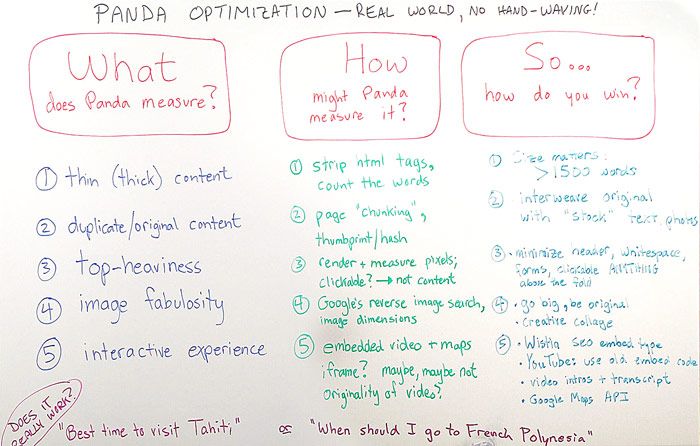 PANDA OPTIMIZATION — REAL WORLD, NO HAND-WAVING!
What
does Panda measure?
① thin (thick) content
② duplicate/original content
③ top-heaviness
④ image fabulosity
⑤ interactive experience
How
might Panda
measure it?
① strip html tags,
count the words
② page "chunking",
thumbprint/hash
③ render + measure pixels;
clickable? → not content
④ Google's reverse image search,
image dimensions
⑤ embedded video + maps
iframe? maybe, maybe not
Originality of video?
So...
how do you win?
① Size matters:
>1500 words
② interweave original
with "stock" text, photos
③ • minimize header, whitespace,
forms, clickable ANYTHING
above the fold
④ • go big, be original
• Creative collage
⑤ • Wistia SEO embed type
• YouTube: use old embed code
• video intros + transcript
• Google Maps API
DOES IT
REALLY WORK?
"Best time to visit Tahiti," or "When should I go to French Polynesia"